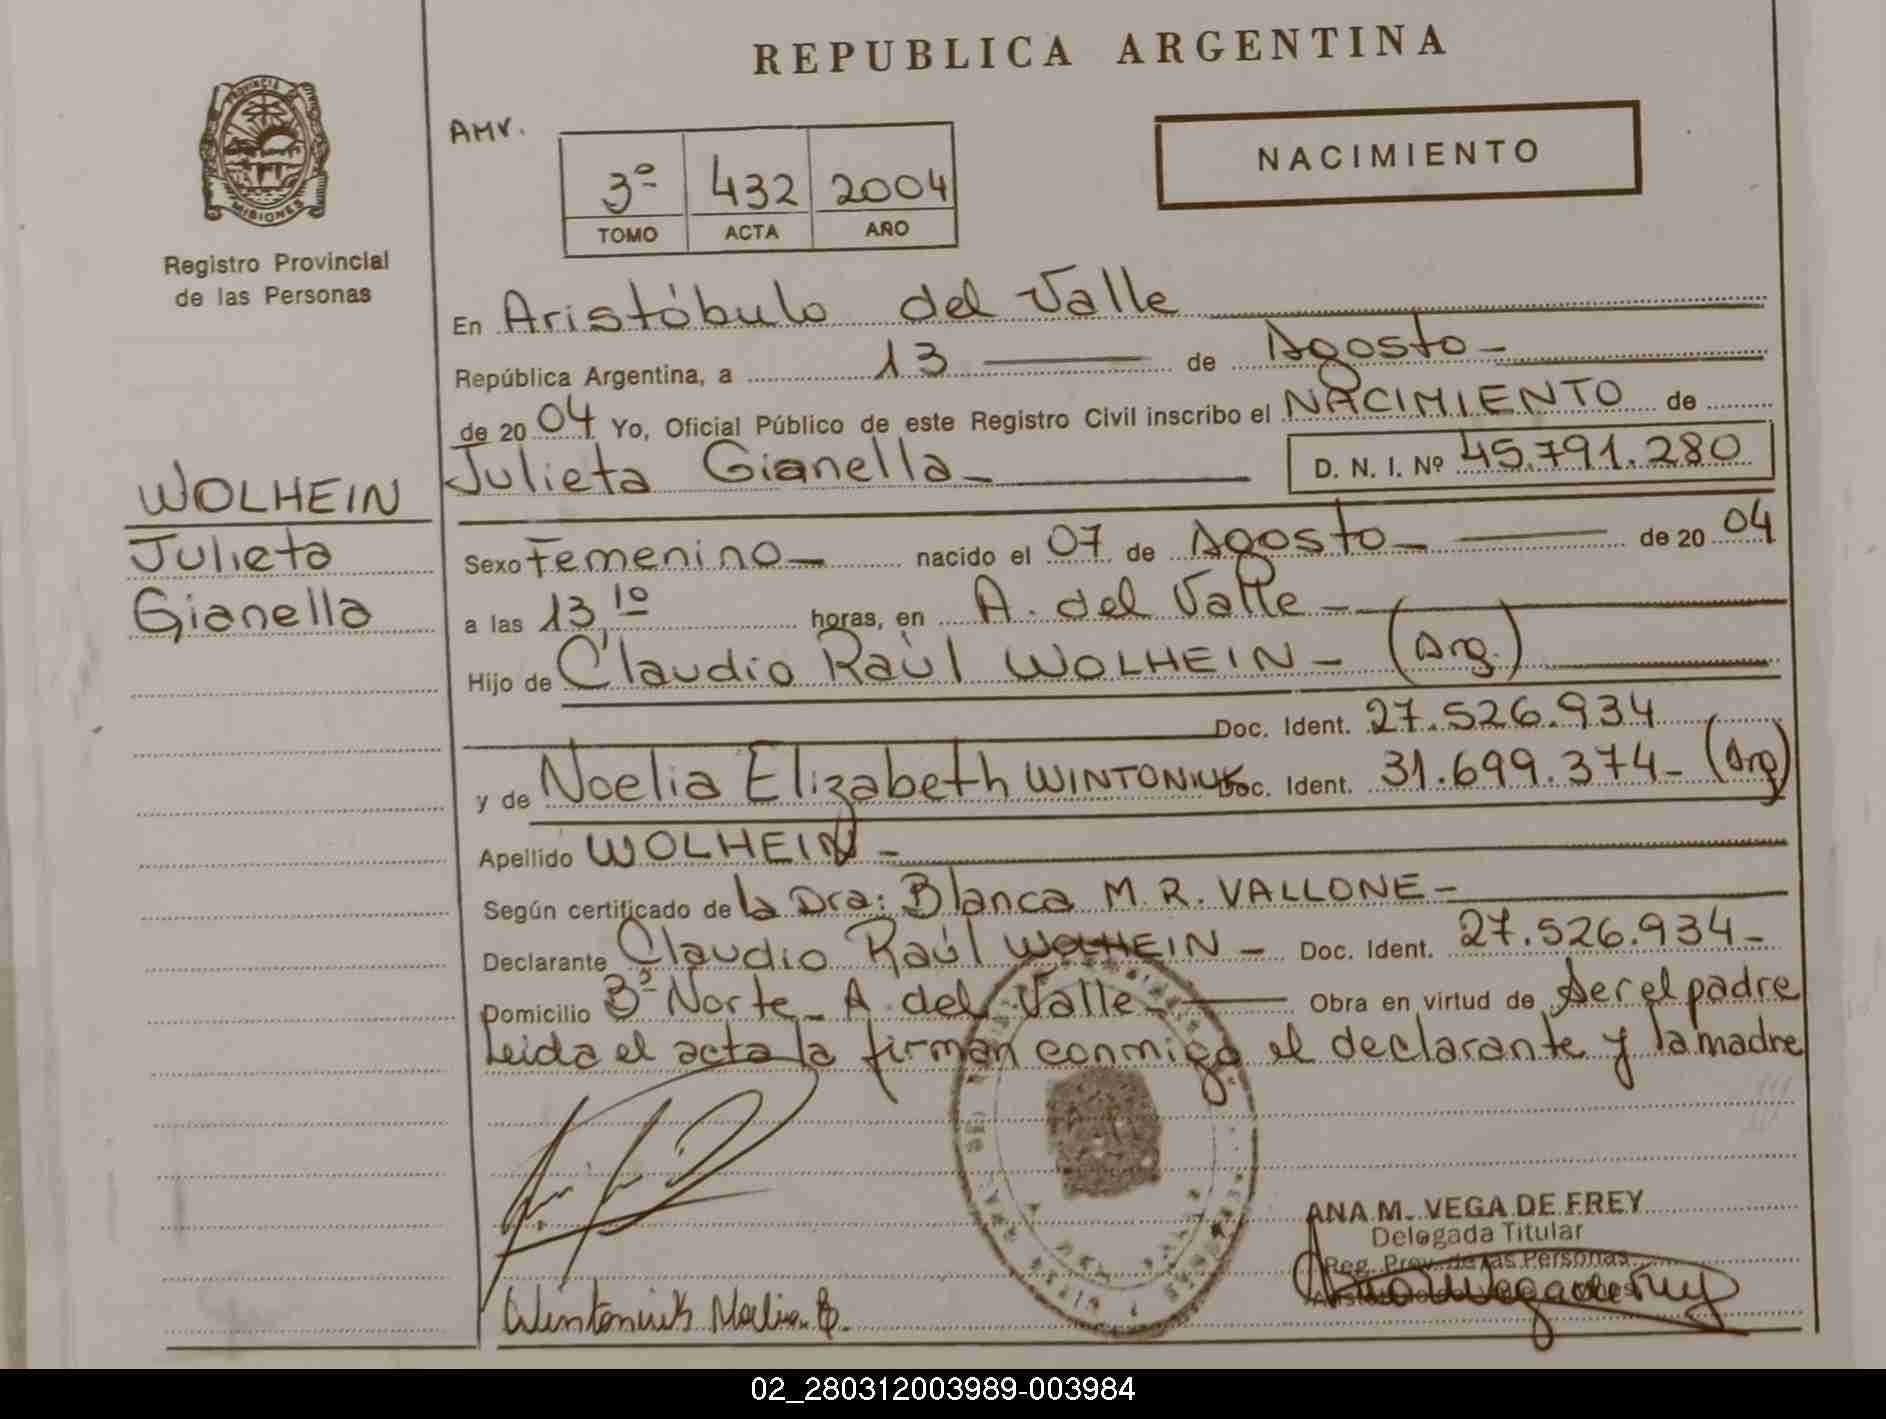 REPUBLICA ARGENTINA
PROVINCIA
MISIONES
Registro Provincial
de las Personas
AMV.
3º 432 2004
TOMO ACTA AÑO
NACIMIENTO
En Aristóbulo del Valle
República Argentina, a 13 de Agosto
de 2004 Yo, Oficial Público de este Registro Civil inscribo el NACIMIENTO de
Julieta Gianella D. N. I. Nº 45.791.280
WOLHEIN
Julieta
Gianella
Sexo Femenino nacido el 07 de Agosto de 2004
a las 13,10 horas, en A. del Valle
Hijo de Claudio Raúl WOLHEIN (Arg.)
Doc. Ident. 27.526.934
y de Noelia Elizabeth WINTONIUK Doc. Ident. 31.699.374 (Arg)
Apellido WOLHEIN
Según certificado de la Dra: Blanca M. R. VALLONE
Declarante Claudio Raúl WOLHEIN Doc. Ident. 27.526.934
Domicilio Bº Norte A. del Valle Obra en virtud de Ser el padre
Leida el acta la firman conmigo el declarante y la madre
ANA M. VEGA DE FREY
Delegada Titular
Reg. Prov. de las Personas
Wintoniuk Noelia E.
02_280312003989-003984